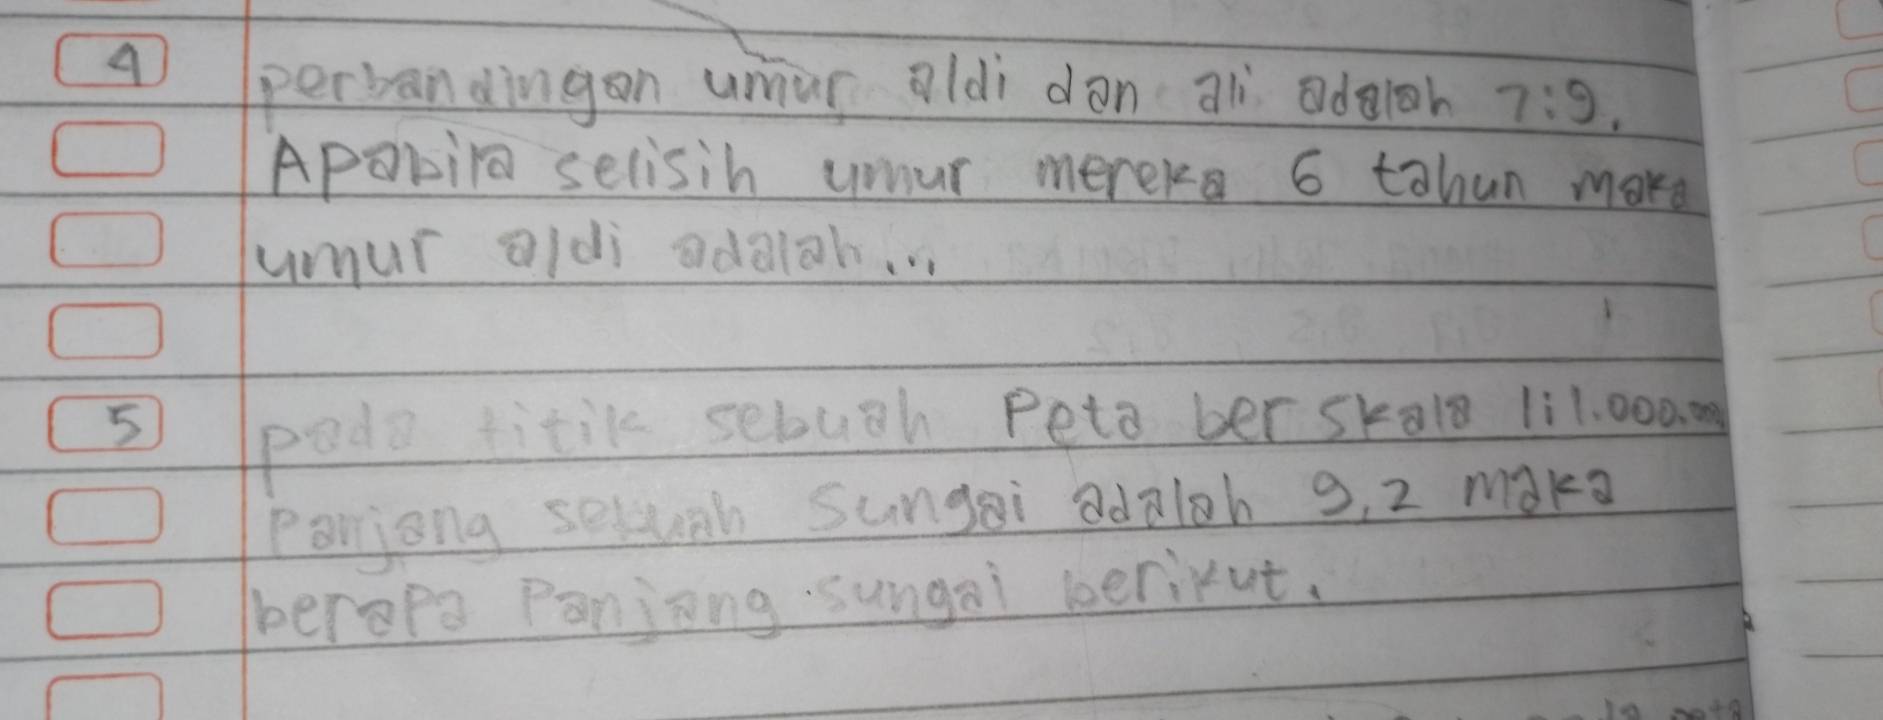 4 perbandingan umur aldi dan ali adalah 7:9.
Apabila selisih umur mereka 6 tahun maka
umur aldi adalah...
5 pada titik sebuah Peta berskala 1:1.000.000
Panjang sebuah sungai adalah 9,2 maka
berapa Panjang sungai berikut.